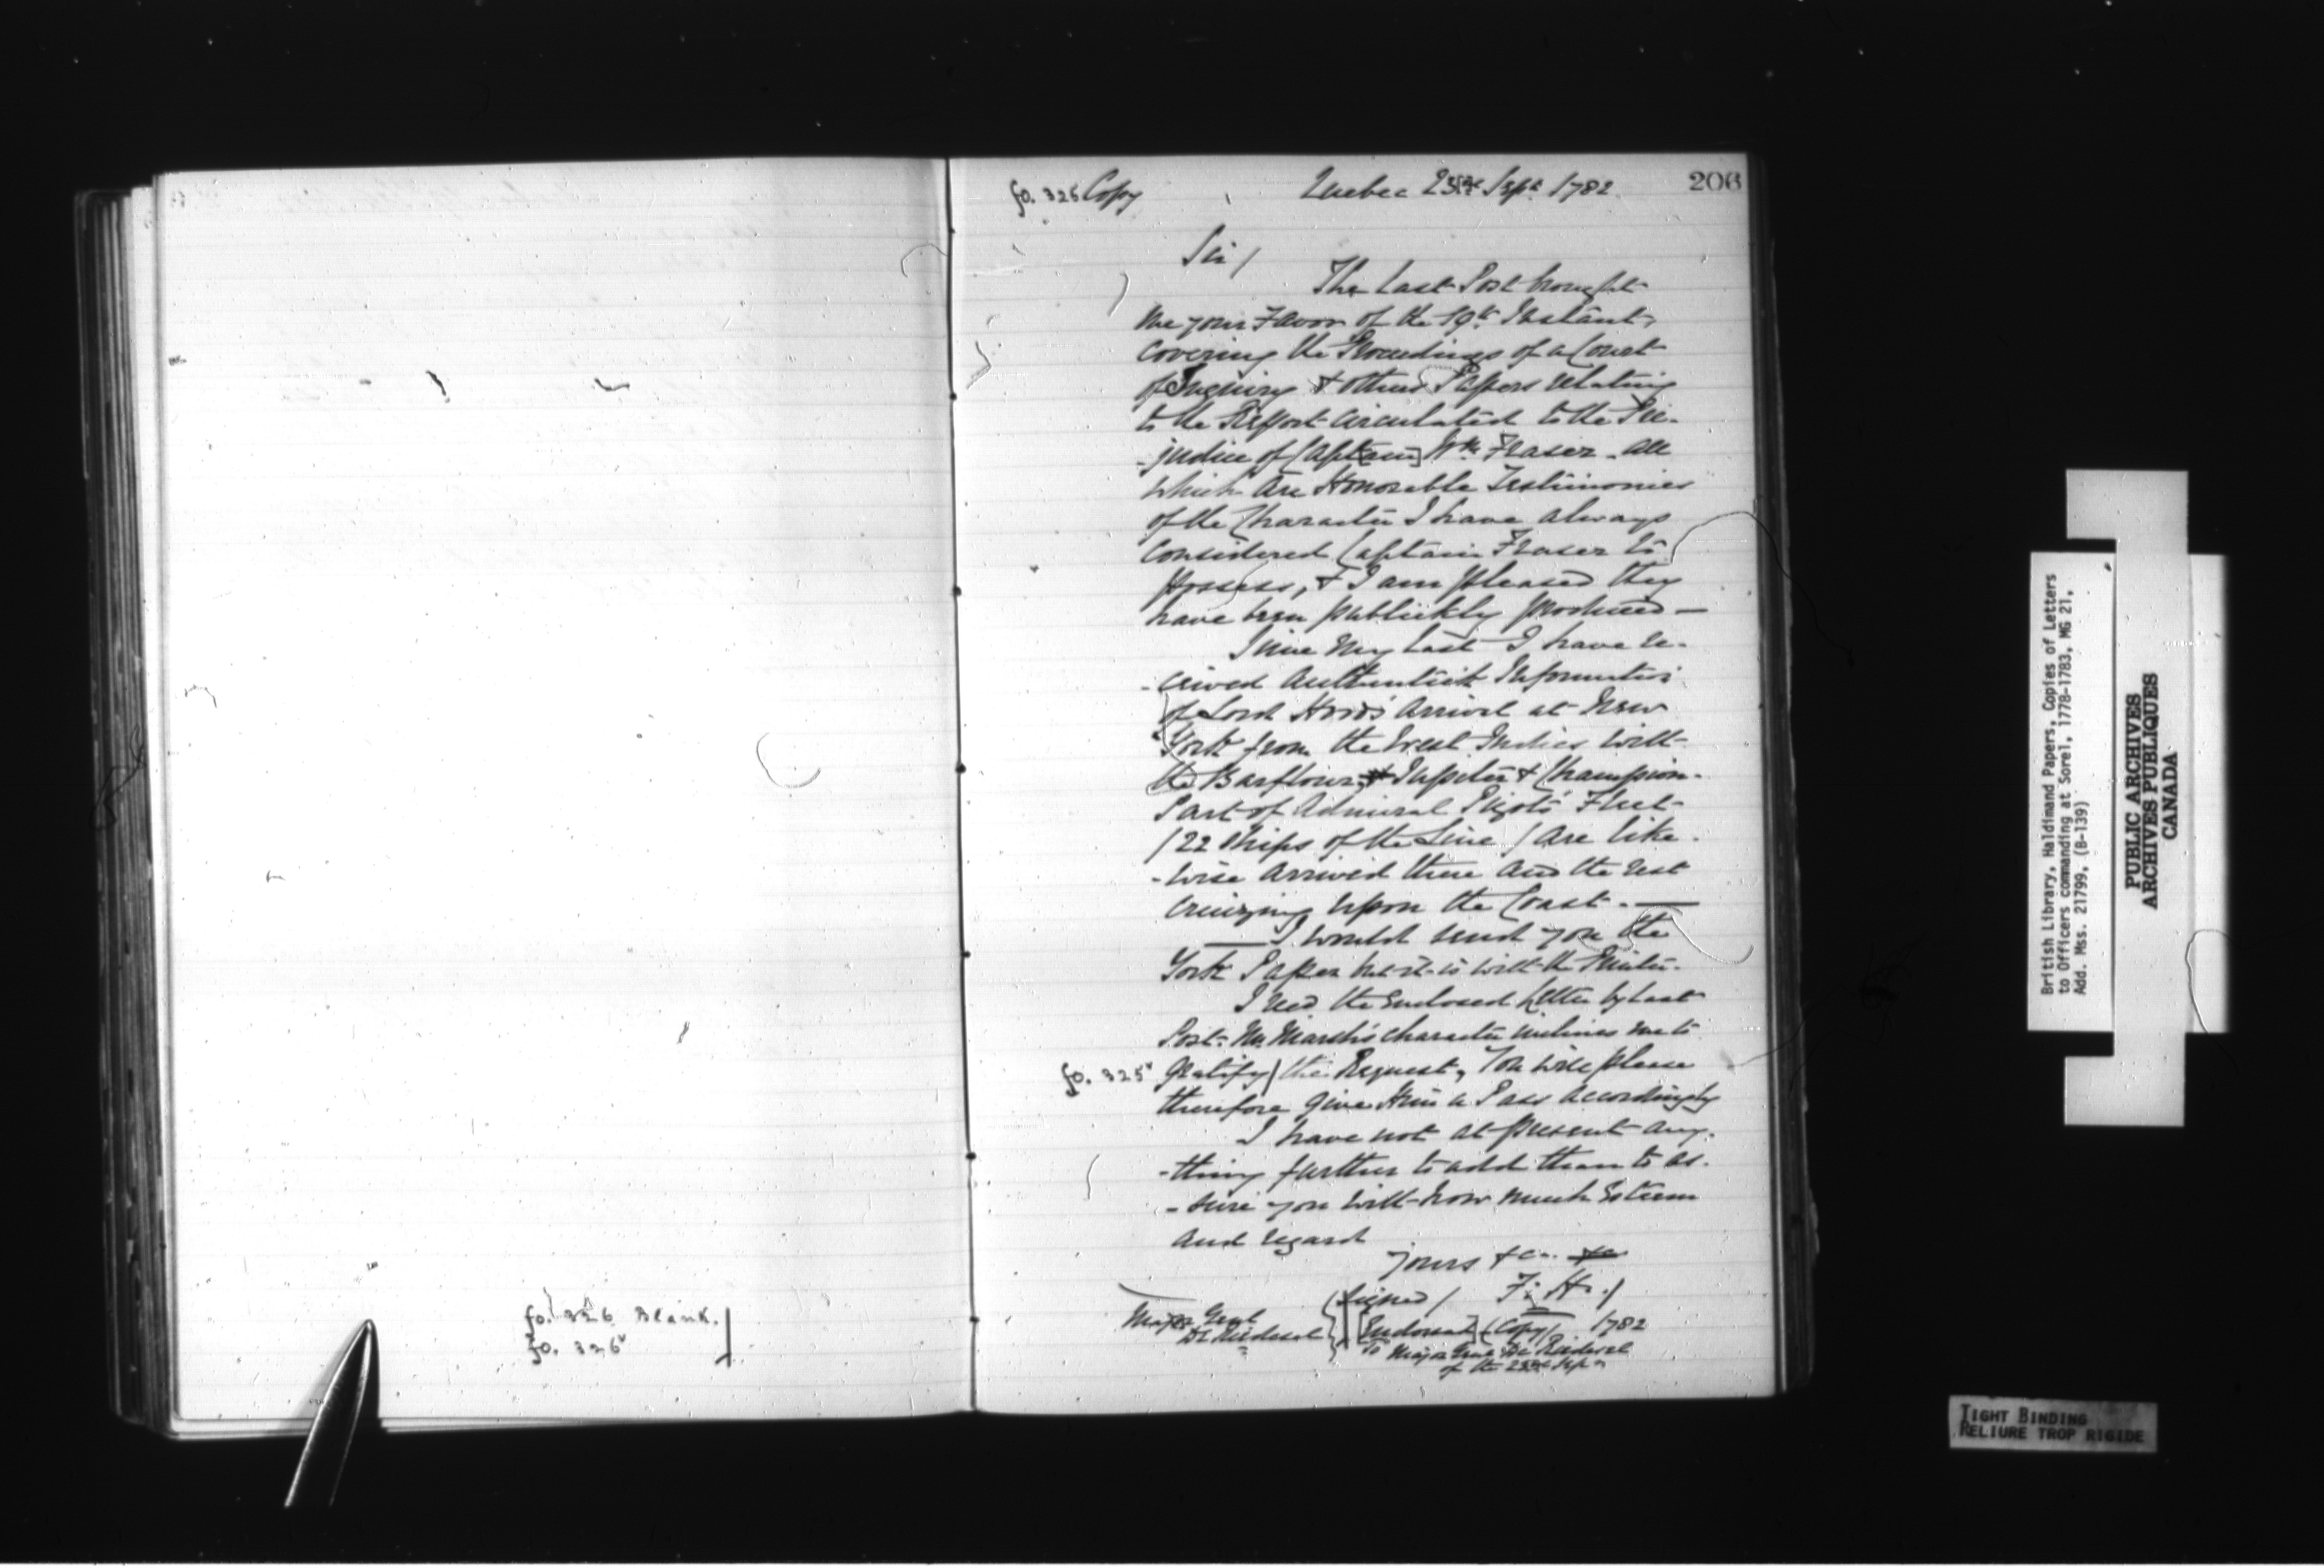 fo. 326 Blank.
fo. 326v
206
fo. 325 Copy Quebec 23rd Sept 1782
Sir/
The Last Post brought
me your Favor of the 19th Instant,
covering the Proceedings of a Court
of Inquiry & other Papers relating
to the Report circulated to the Pre-
-judice of Capt[ain] Wm Fraser - all
which are Honorable Testimonies
of the Character I have always
considered Captain Fraser to
possess, & I am pleased they
have been publickly produced —
Since my Last I have re-
-ceived Authentick Information
of Lord Hood's Arrival at New
York from the West Indies with
the Barfleur, Jupiter & Champion.
Part of Admiral Pigot's Fleet
/22 Ships of the Line/ are like-
-wise arrived there and the rest
cruizing upon the Coast. —
— I would send you the
York Paper but it is with the Printer.
I recd the Enclosed Letter by Last
Post: Mr. Marsh's character inclines me to
fo. 325v gratify/ the Request, You will please
therefore give Him a Pass accordingly
I have not at present any-
-thing further to add than to as-
-sure you with how much Esteem
and regard
yours &c. &c
(Signed/ F: H./
Major Genl
De Riedesel
[Endorsed] (Copy/ 1782
To Major Genl De Riedesel
of the 23rd Sepr
British Library, Haldimand Papers, Copies of Letters
to Officers commanding at Sorel, 1778-1783, MG 21,
Add. Mss. 21799, (B-139)
PUBLIC ARCHIVES
ARCHIVES PUBLIQUES
CANADA
TIGHT BINDING
RELIURE TROP RIGIDE